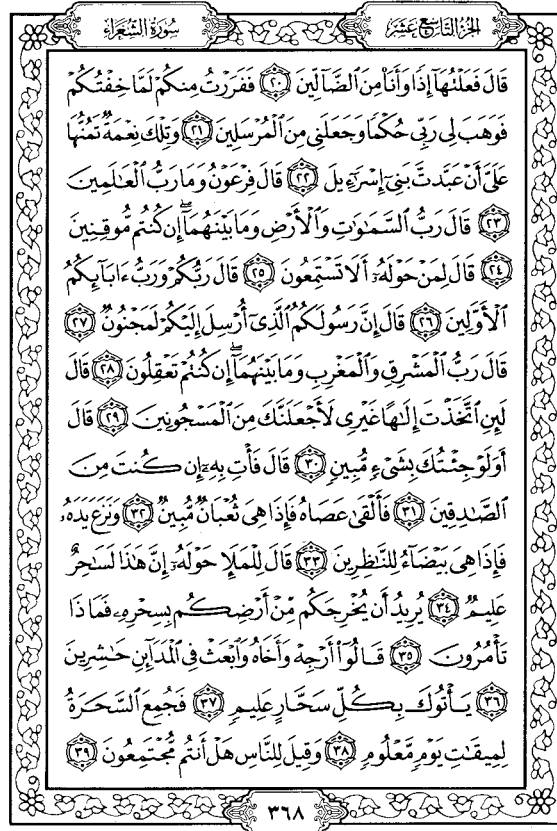 سُورَةُ الشُّعَرَاءِ
الجُزْءُ التَّاسِعَ عَشَرَ
قَالَ فَعَلْتُهَا إِذًا وَأَنَا۠ مِنَ ٱلضَّآلِّينَ ٢٠ فَفَرَرْتُ مِنكُمْ لَمَّا خِفْتُكُمْ
فَوَهَبَ لِى رَبِّى حُكْمًا وَجَعَلَنِى مِنَ ٱلْمُرْسَلِينَ ٢١ وَتِلْكَ نِعْمَةٌ تَمُنُّهَا
عَلَىَّ أَنْ عَبَّدتَّ بَنِىٓ إِسْرَٰٓءِيلَ ٢٢ قَالَ فِرْعَوْنُ وَمَا رَبُّ ٱلْعَٰلَمِينَ
٢٣ قَالَ رَبُّ ٱلسَّمَٰوَٰتِ وَٱلْأَرْضِ وَمَا بَيْنَهُمَآ ۖ إِن كُنتُم مُّوقِنِينَ
٢٤ قَالَ لِمَنْ حَوْلَهُۥٓ أَلَا تَسْتَمِعُونَ ٢٥ قَالَ رَبُّكُمْ وَرَبُّ ءَابَآئِكُمُ
ٱلْأَوَّلِينَ ٢٦ قَالَ إِنَّ رَسُولَكُمُ ٱلَّذِىٓ أُرْسِلَ إِلَيْكُمْ لَمَجْنُونٌ ٢٧
قَالَ رَبُّ ٱلْمَشْرِقِ وَٱلْمَغْرِبِ وَمَا بَيْنَهُمَآ ۖ إِن كُنتُمْ تَعْقِلُونَ ٢٨ قَالَ
لَئِنِ ٱتَّخَذْتَ إِلَٰهًا غَيْرِى لَأَجْعَلَنَّكَ مِنَ ٱلْمَسْجُونِينَ ٢٩ قَالَ
أَوَلَوْ جِئْتُكَ بِشَىْءٍ مُّبِينٍ ٣٠ قَالَ فَأْتِ بِهِۦٓ إِن كُنتَ مِنَ
ٱلصَّٰدِقِينَ ٣١ فَأَلْقَىٰ عَصَاهُ فَإِذَا هِىَ ثُعْبَانٌ مُّبِينٌ ٣٢ وَنَزَعَ يَدَهُۥ
فَإِذَا هِىَ بَيْضَآءُ لِلنَّٰظِرِينَ ٣٣ قَالَ لِلْمَلَإِ حَوْلَهُۥٓ إِنَّ هَٰذَا لَسَٰحِرٌ
عَلِيمٌ ٣٤ يُرِيدُ أَن يُخْرِجَكُم مِّنْ أَرْضِكُم بِسِحْرِهِۦ فَمَاذَا
تَأْمُرُونَ ٣٥ قَالُوٓا۟ أَرْجِهْ وَأَخَاهُ وَٱبْعَثْ فِى ٱلْمَدَآئِنِ حَٰشِرِينَ
٣٦ يَأْتُوكَ بِكُلِّ سَحَّارٍ عَلِيمٍ ٣٧ فَجُمِعَ ٱلسَّحَرَةُ
لِمِيقَٰتِ يَوْمٍ مَّعْلُومٍ ٣٨ وَقِيلَ لِلنَّاسِ هَلْ أَنتُم مُّجْتَمِعُونَ ٣٩
٣٦٨